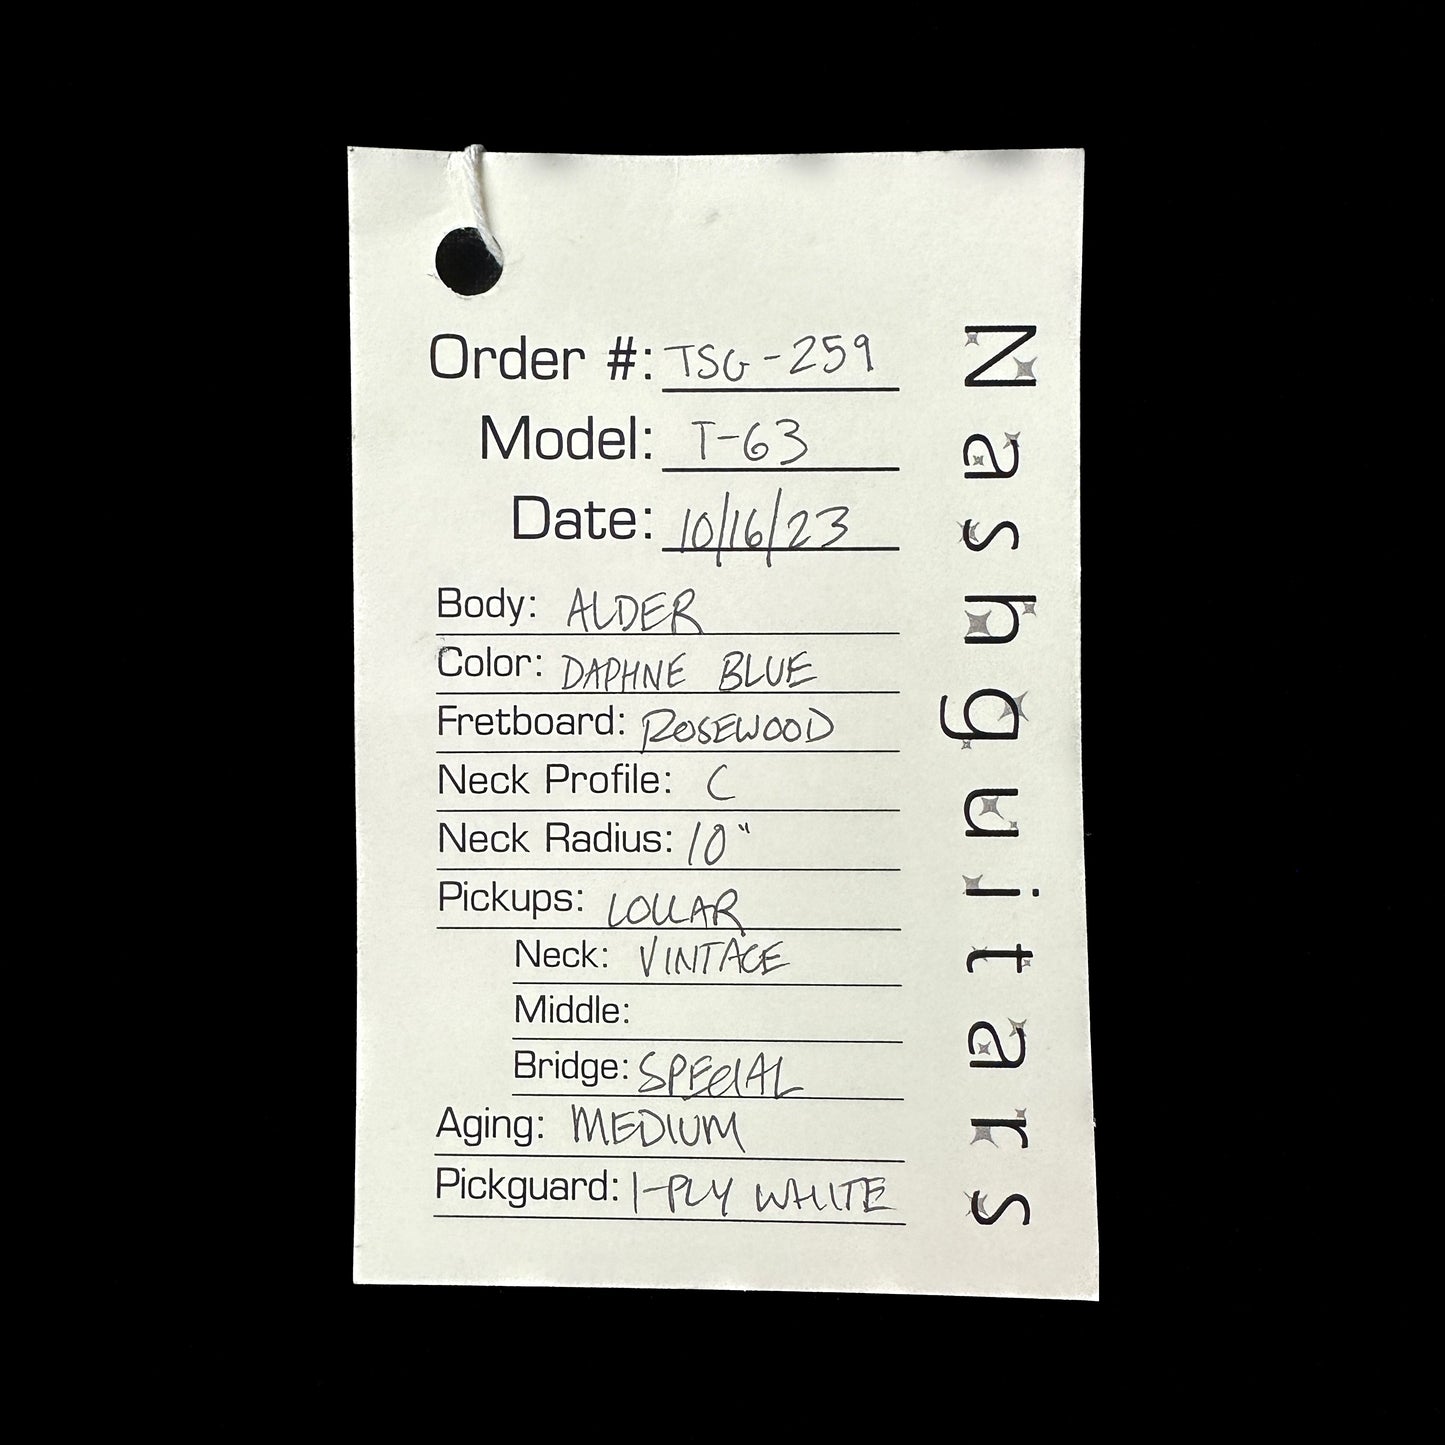 Order #: TSG-259
Model: T-63
Date: 10/16/23
Body: ALDER
Color: DAPHNE BLUE
Fretboard: ROSEWOOD
Neck Profile: C
Neck Radius: 10"
Pickups: LOLLAR
Neck: VINTAGE
Middle:
Bridge: SPECIAL
Aging: MEDIUM
Pickguard: 1-PLY WHITE
Nashguitars